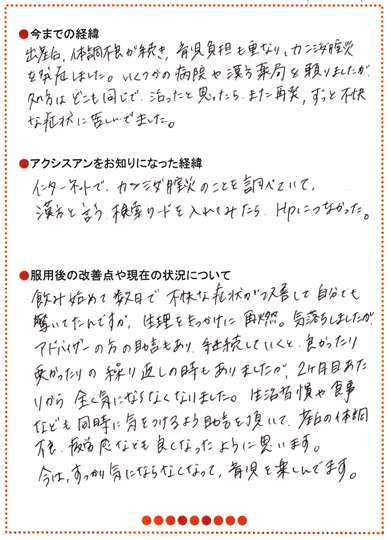 ●今までの経緯
出産自、体調不良が続き、育児負担も重なり、カンジダ膣炎
を発症しました。いくつかの病院や漢方薬局を頼りましたが、
処方はどこも同じで、治ったと思ったら、また再発、ずっと不快
な症状に苦しんでました。
●アクシスアンをお知りになった経緯
インターネットで、カンジダ膣炎のことを調べていて、
漢方と言う検索ワードを入れてみたら、Hpにつながった。
●服用後の改善点や現在の状況について
飲み始めて数日で不快な症状が改善して自分でも
驚いてたんですが、生理をきっかけに再燃。気落ちしましたが
アドバイザーの方の助言もあり、継続していくと、良かったり
悪かったりの繰り返しの時もありましたが、2ヶ月目あた
りから全く気にならなくなりました。生活習慣や食事
なども同時に気をつけるよう助言を頂いて、産自の体調
不良、疲労感なども良くなったように思います。
今は、すっかり気にならなくなって、育児を楽しんでます。